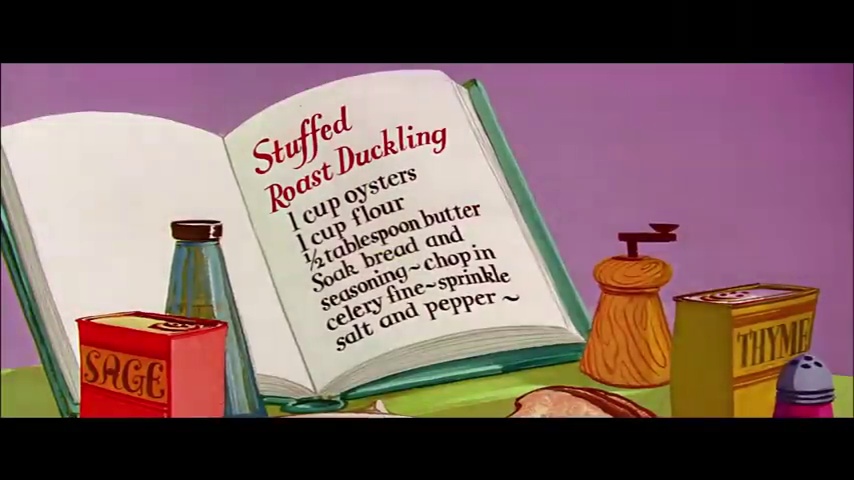 Stuffed
Roast Duckling
1 cup oysters
1 cup flour
½ tablespoon butter
Soak bread and
seasoning~chop in
celery fine~sprinkle
salt and pepper ~
SAGE
THYME